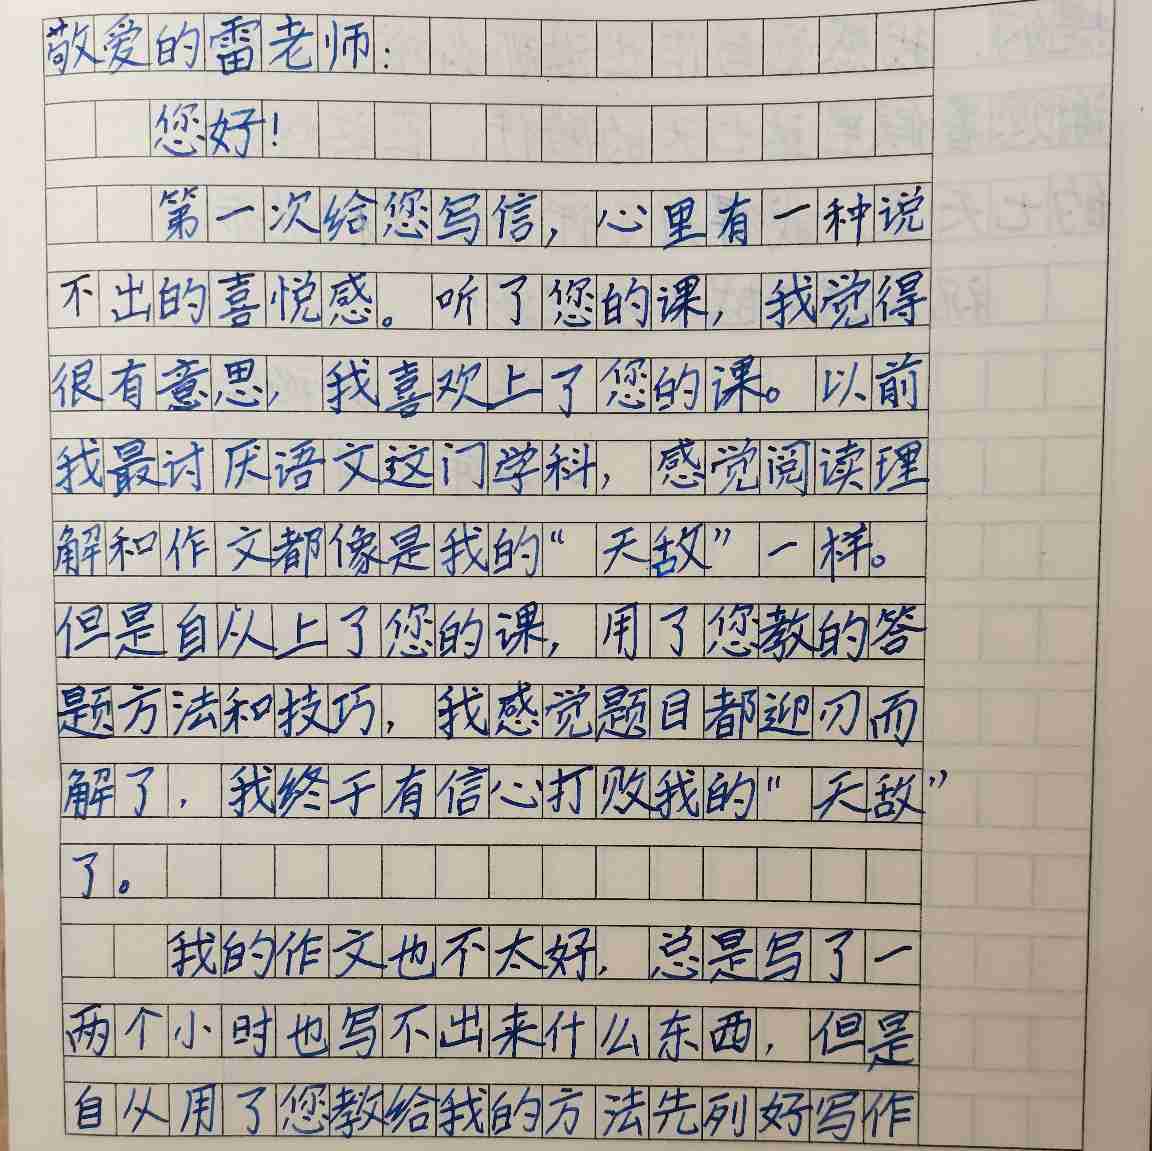 敬爱的雷老师：
您好！
第一次给您写信，心里有一种说
不出的喜悦感。听了您的课，我觉得
很有意思，我喜欢上了您的课。以前
我最讨厌语文这门学科，感觉阅读理
解和作文都像是我的“天敌”一样。
但是自从上了您的课，用了您教的答
题方法和技巧，我感觉题目都迎刃而
解了，我终于有信心打败我的“天敌”
了。
我的作文也不太好，总是写了一
两个小时也写不出来什么东西，但是
自从用了您教给我的方法先列好写作